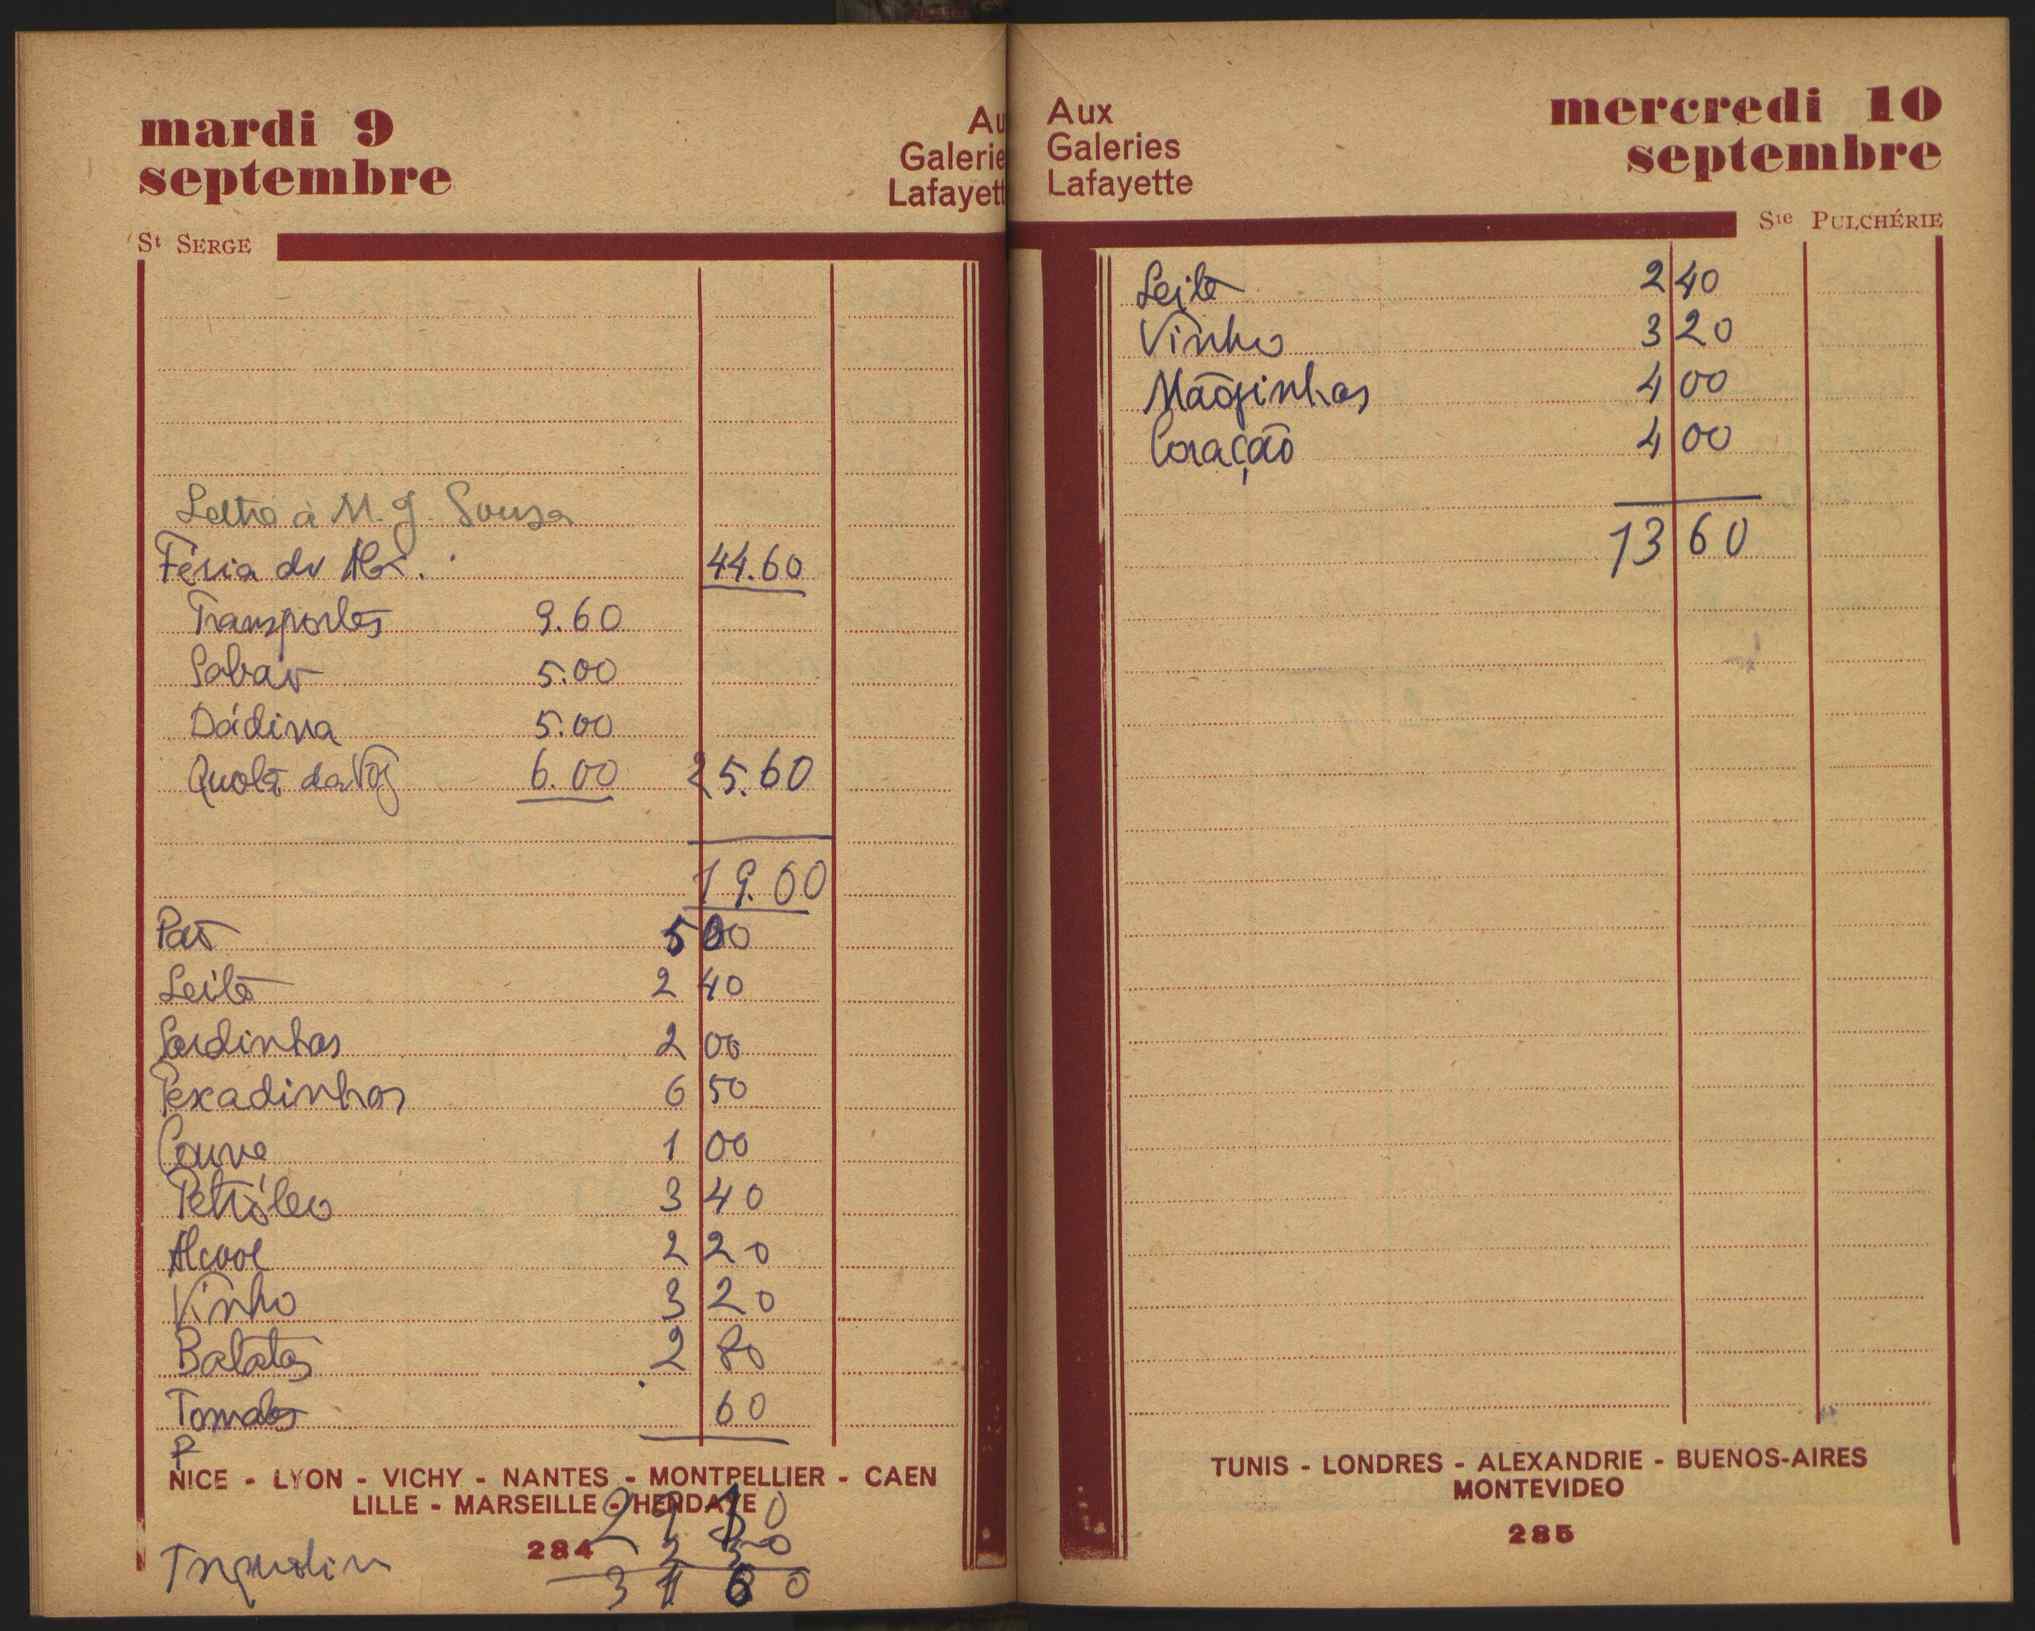 mardi 9
septembre
Au
Galerie
Lafayett
St SERGE
à M. J. Sousa
Féria do
44.60
Transportes 9.60
Sabão 5.00
Dádiva 5.00
Quota da Voz 6.00 25.60
19.00
Pão 5 00
Leite 2 40
Sardinhas 2 00
Pexadinhas 6 50
Couve 1 00
Petróleo 3 40
Alcool 2 20
Vinho 3 20
Batatas 2 80
Tomates 60
P
NICE - LYON - VICHY - NANTES - MONTPELLIER - CAEN
LILLE - MARSEILLE - HENDAYE
29 10
284
2 50
31 60
Aux
Galeries
Lafayette
mercredi 10
septembre
Ste PULCHÉRIE
Leite 2 40
Vinho 3 20
Mãozinhas 4 00
Coração 4 00
13 60
TUNIS - LONDRES - ALEXANDRIE - BUENOS-AIRES
MONTEVIDEO
285